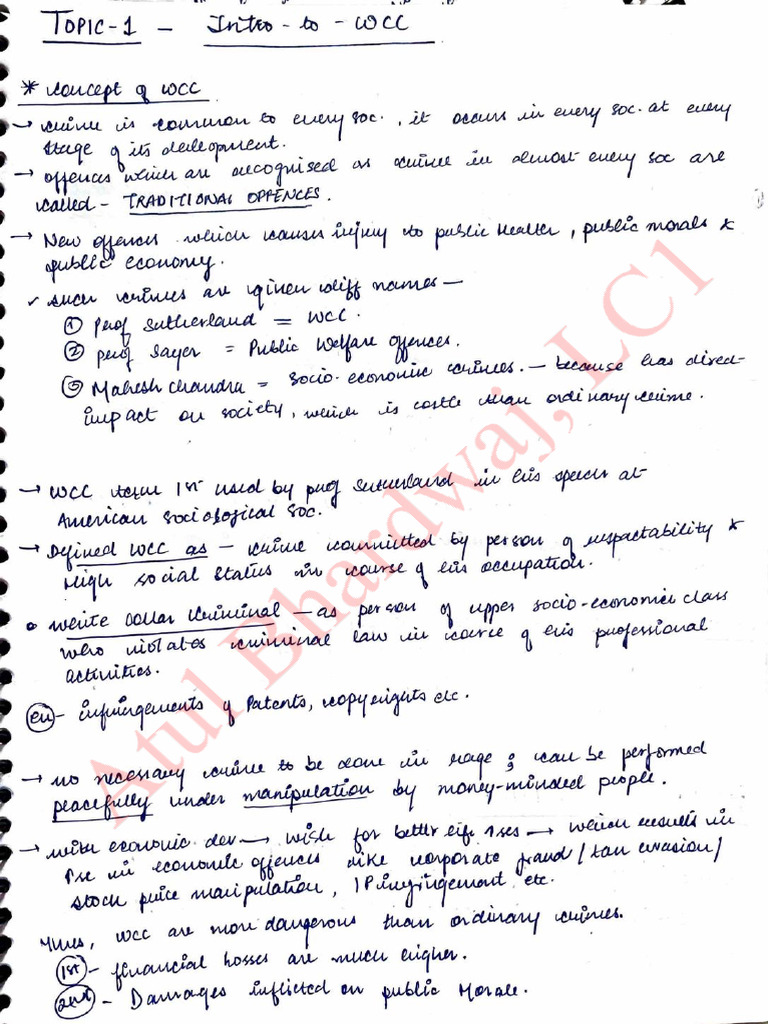 TOPIC-1 - Intro-to-WCC
* Concept of WCC
→ crime is common to every soc., it occurs in every soc. at every
stage of its development.
→ offences which are recognised as crime in almost every soc are
called - TRADITIONAL OFFENCES.
→ New offences which causes injury to public Health, public morals &
public economy.
✓ such crimes are given diff names —
① Prof Sutherland = WCC.
② prof Sayer = Public Welfare offences.
③ Mahesh Chandra = Socio-economic crimes. — because has direct
impact on society, which is than ordinary crime.
→ WCC term 1st used by prof Sutherland in his speech at
American Sociological Soc.
→ Defined WCC as — crime committed by person of respectability &
High social status in course of his occupation.
• White collar Criminal — as person of upper socio-economic class
who violates criminal law in course of his professional
activities.
ex - infringements of Patents, copyrights etc.
→ no necessary crime to be done in rage; can be performed
peacefully under manipulation by money-minded people.
→ with economic dev → wish for better life rises → which results in
↑se in economic offences like corporate fraud / tax evasion /
stock price manipulation, IP infringement etc.
Thus, WCC are more dangerous than ordinary crimes.
1st - financial losses are much higher.
2nd - Damages inflicted on public Morale.
Atul Bhardwaj, LC1